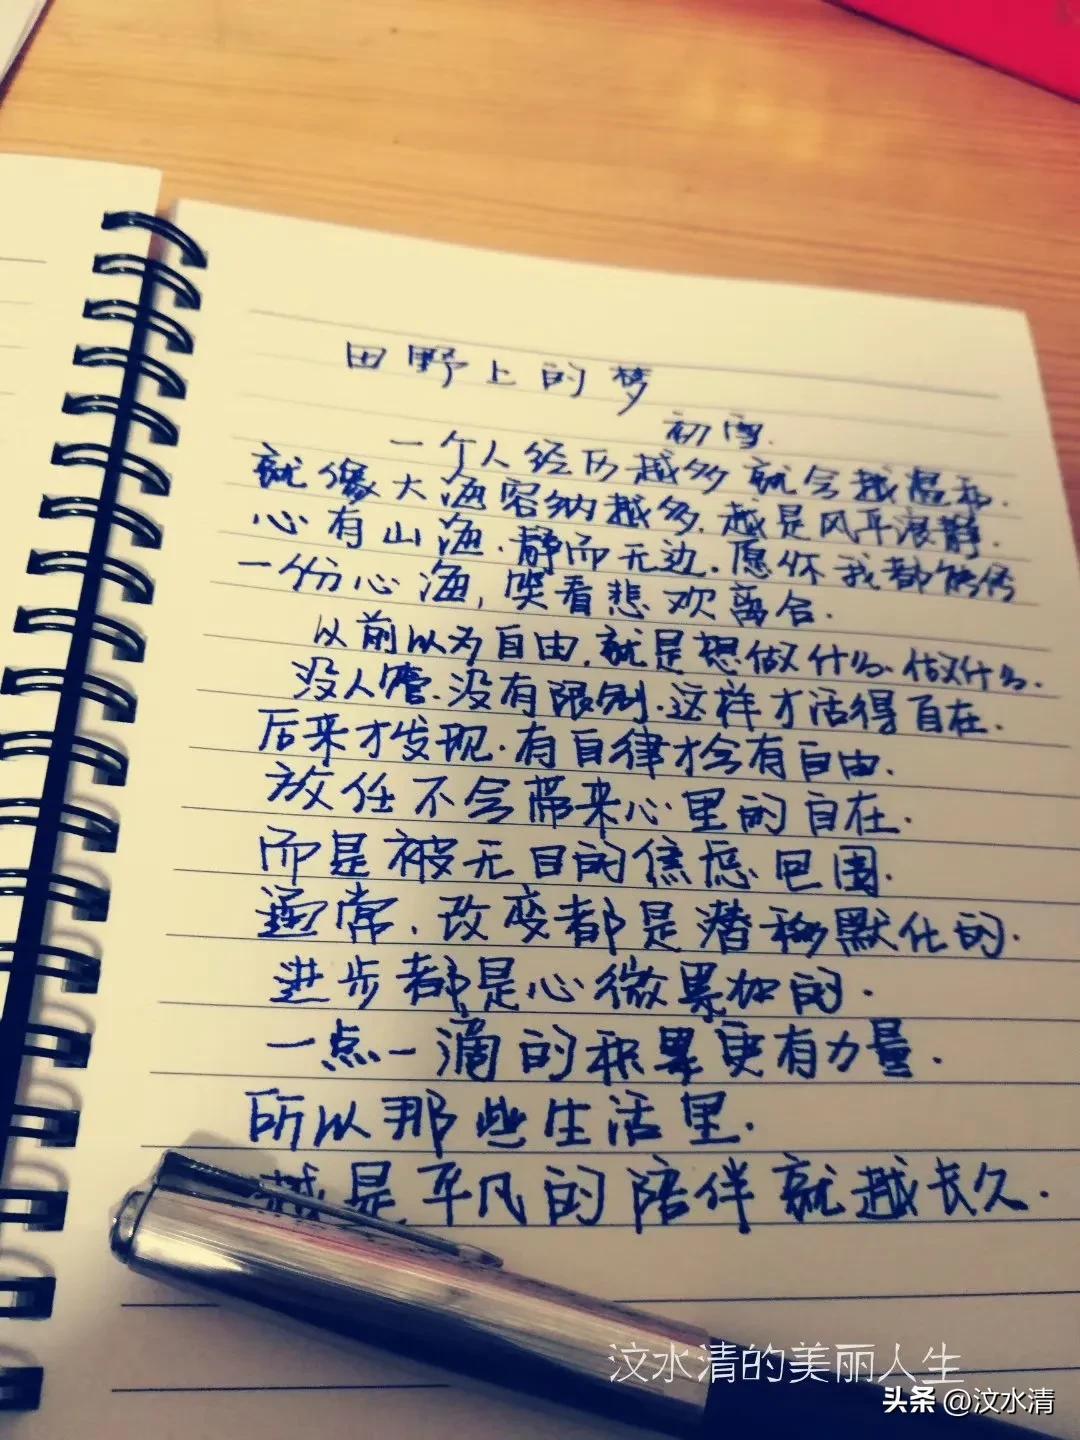 田野上的梦
初雪.
一个人经历越多就会越温和.
就像大海容纳越多.越是风平浪静.
心有山海.静而无边.愿你我都能修
一份心海,笑看悲欢离合.
以前以为自由.就是想做什么.做什么.
没人管.没有限制.这样才活得自在.
后来才发现.有自律才会有自由.
放任不会带来心里的自在.
而是被无目的焦虑包围.
通常.改变都是潜移默化的.
进步都是心微累加的.
一点一滴的积累更有力量.
所以那些生活里.
越是平凡的陪伴就越长久.
汶水清的美丽人生
头条@汶水清